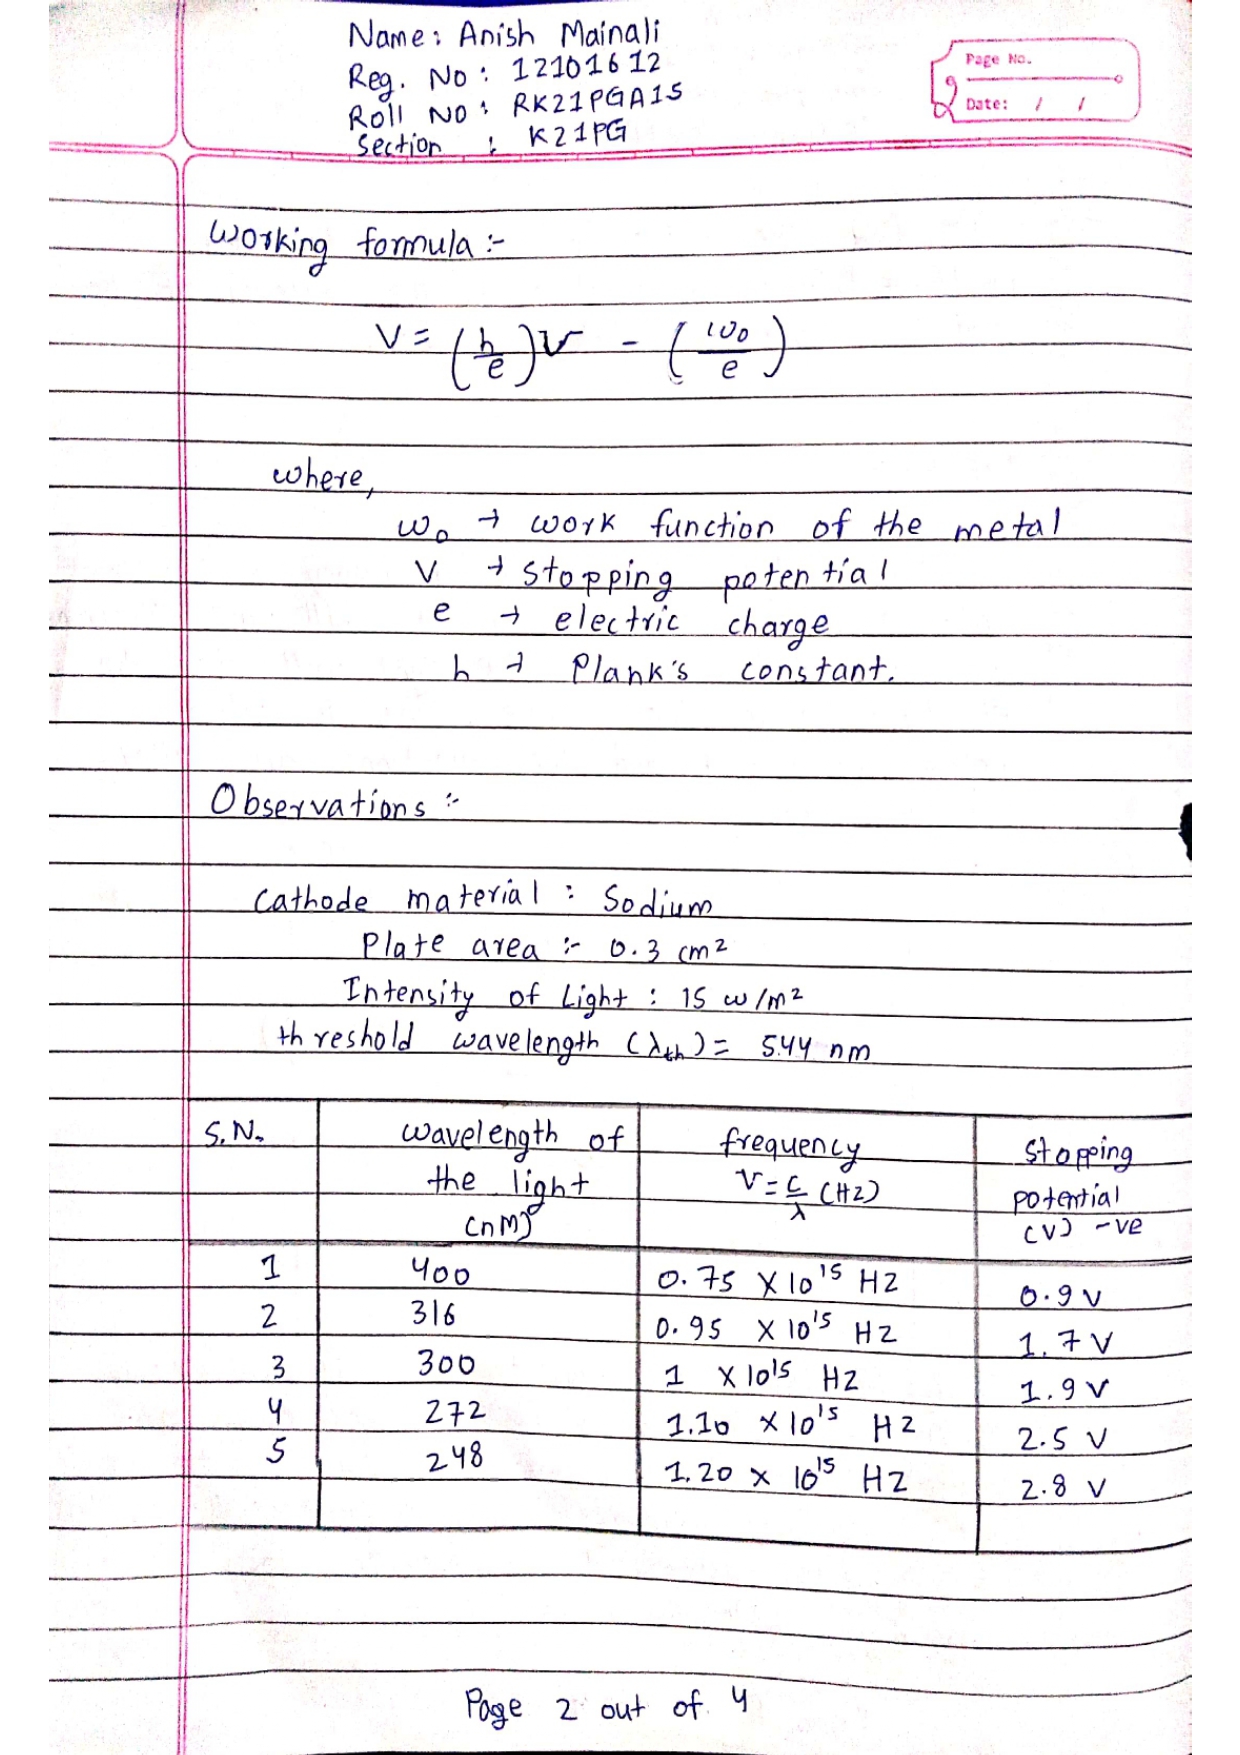 Name: Anish Mainali
Reg. No: 12101612
Roll No: RK21PGA15
Section : K21PG
Page No.
Date: / /
Working formula :-
V = (h/e)ν - (w₀/e)
where,
w₀ → work function of the metal
V → stopping potential
e → electric charge
h → Plank's constant.
Observations :-
Cathode material : Sodium
Plate area :- 0.3 cm²
Intensity of Light : 15 w/m²
threshold wavelength (λth) = 544 nm
S.N. wavelength of the light (nM) frequency ν = c/λ (HZ) Stopping potential (V) -ve
1 400 0.75 X 10¹⁵ HZ 0.9 V
2 316 0.95 X 10¹⁵ HZ 1.7 V
3 300 1 X 10¹⁵ HZ 1.9 V
4 272 1.10 X 10¹⁵ HZ 2.5 V
5 248 1.20 x 10¹⁵ HZ 2.8 V
Page 2 out of 4